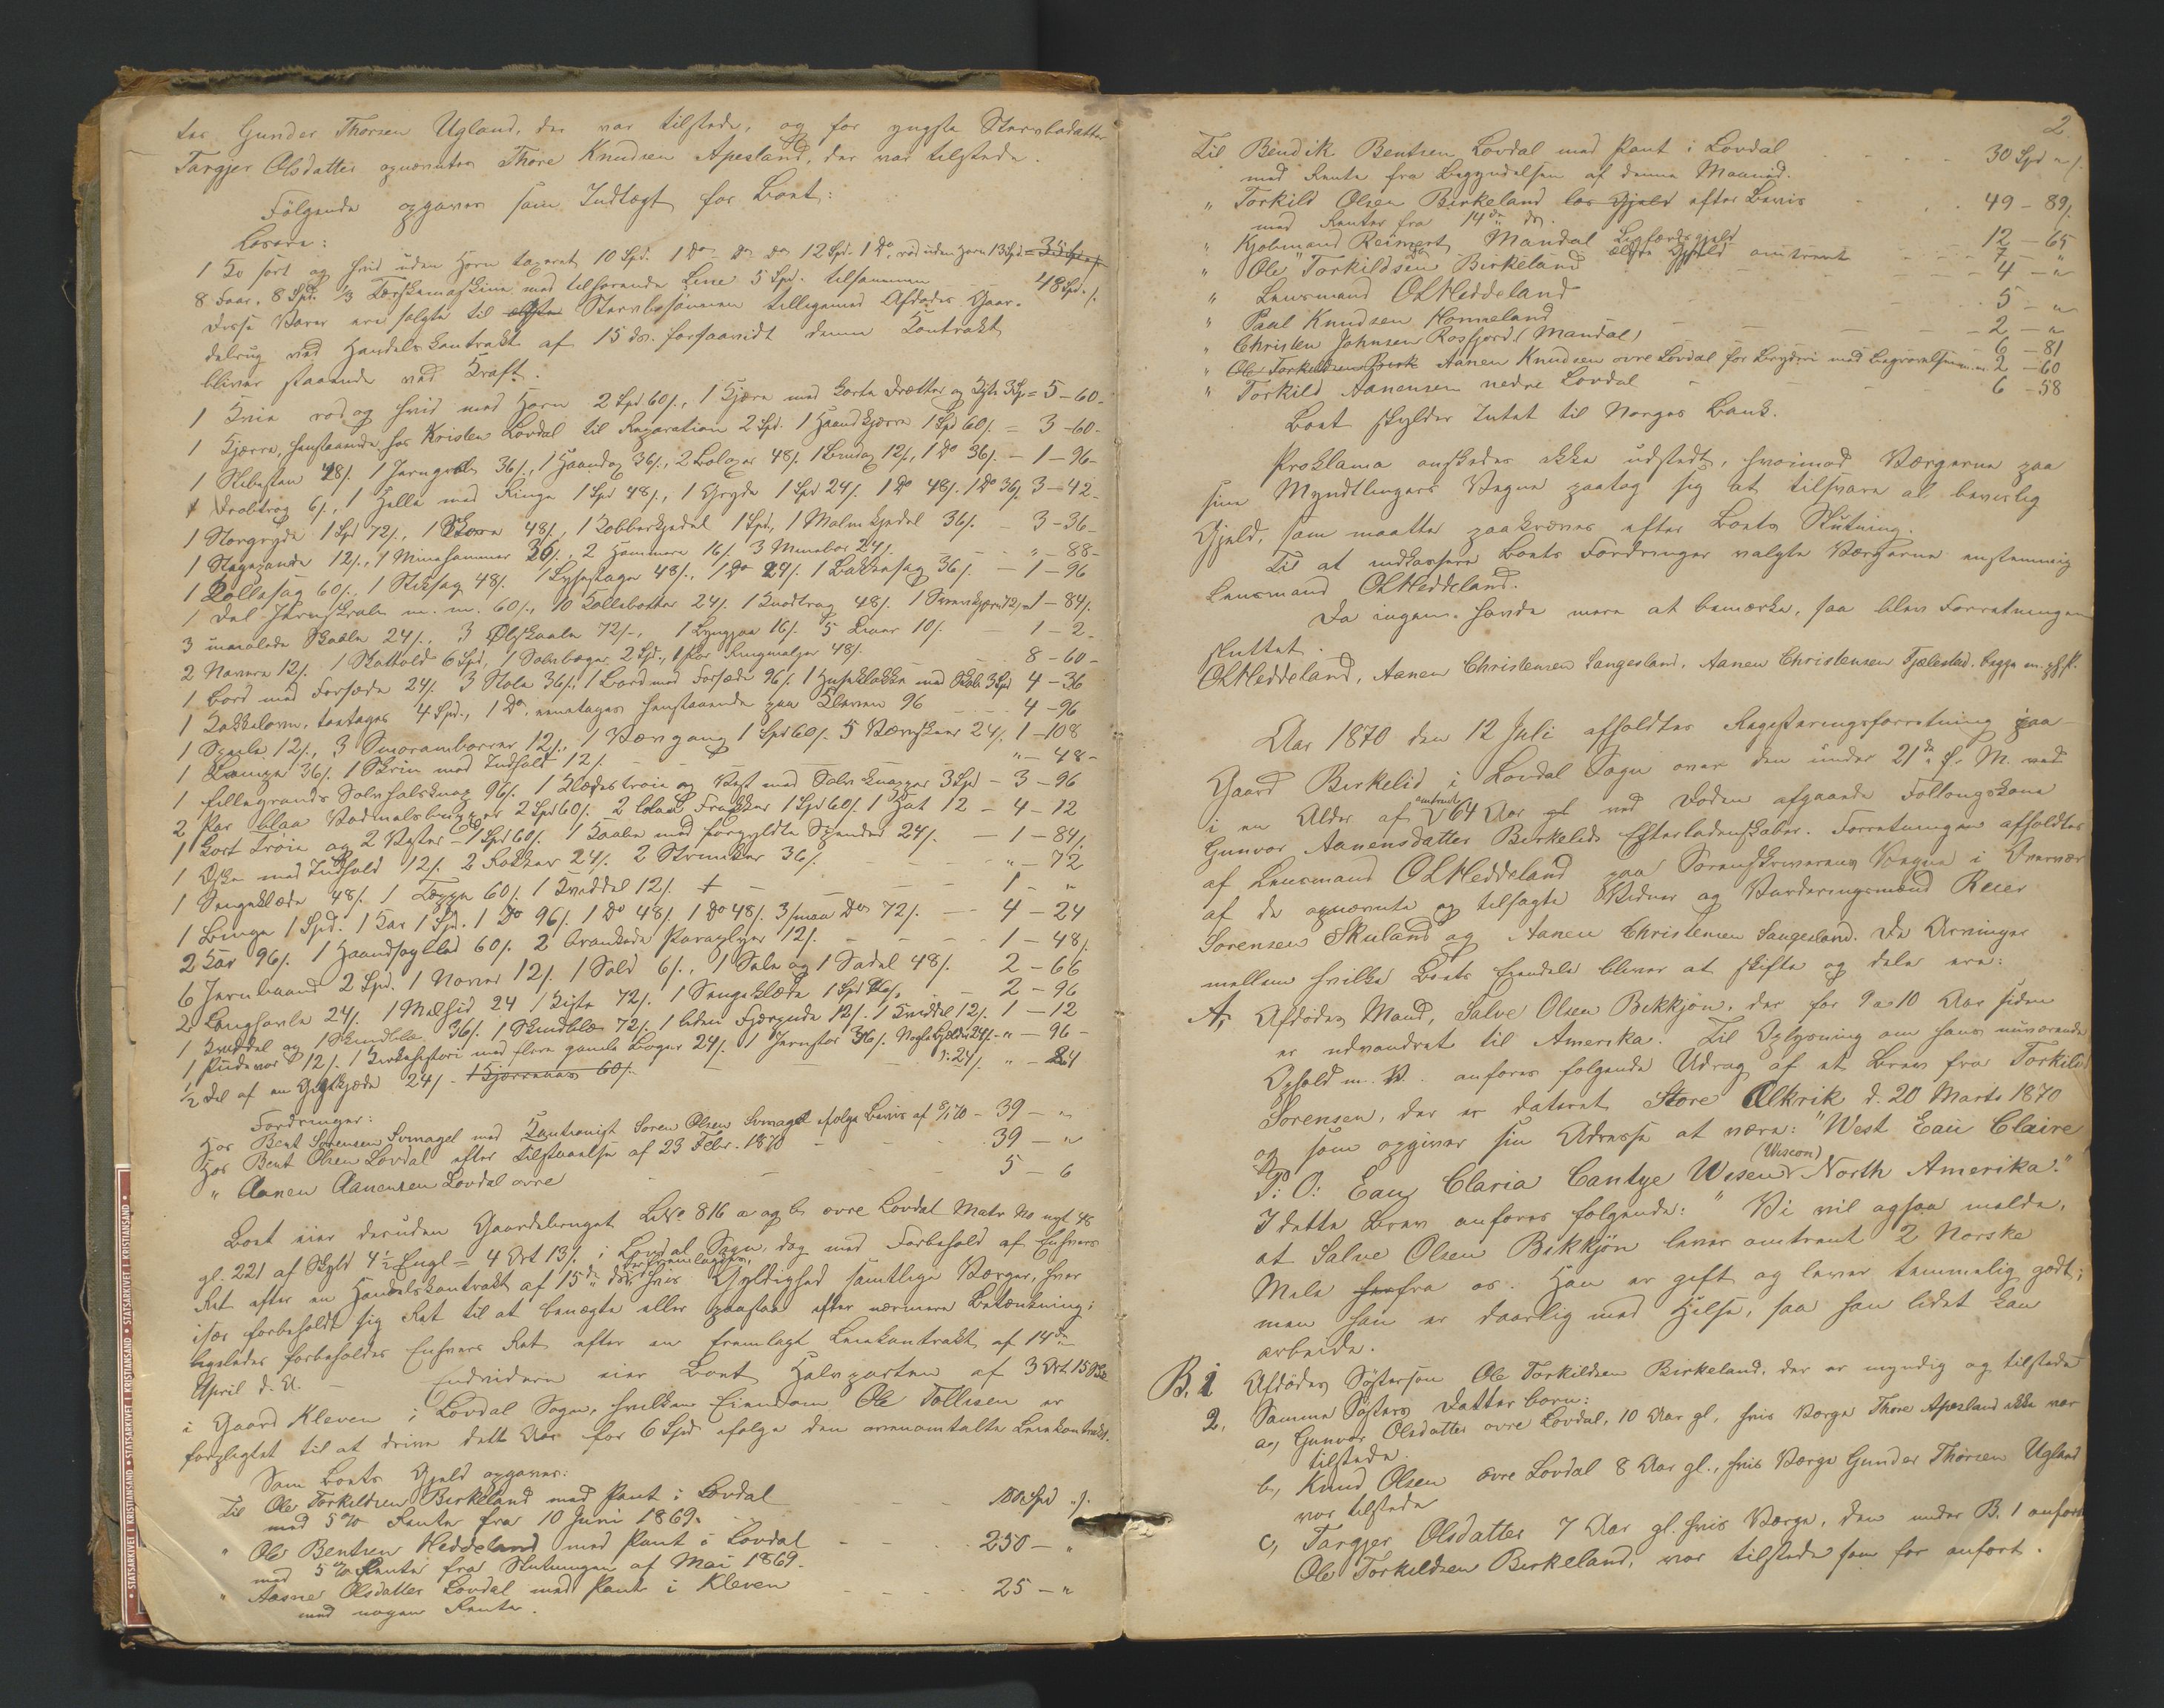 ter Gunder Thorsen Ugland, der var tilstede, og for yngste Stervbodatter
Targjer Olsdatter opnævntes Thore Knudsen Apesland, der var tilstede.
Følgende opgaves som Indtægt for Boet:
Løsøre:
1 Ko sort og hvid uden Horn taxeret 10 Spd. 1 Do Do Do 12 Spd. 1 Do, rød uden Horn 13 Spd =
8 Faar, 8 Spd. 1/3 Tærskemaskine med tilhørende Line 5 Spd. tilsammen 48 Spd. /.
Disse Varer ere solgte til ælgste Stervbosønnen tilligemed Afdødes Gaar-
delrug ved Handelskontrakt af 15 ds. forsaavidt denne Kontrakt
bliver staaende ved Kraft.
1 Kvie rød og hvid med Horn 2 Spd 60/., 1 Kjærre med korte Drætter og 3 Sp = 5-60-
1 Kjærre, henstaaende hos Kristen Lovdal til Reparation 2 Spd. 1 Haandkjærre 1 Spd 60/. = 3-60-
1 Slibesten 48/. 1 Jerngreb 36/., 1 Haandøx 36/., 2 Boløxer 48/. 1 Bredøx 12/., 1 Do 36/. - 1-96-
1 Drobtrog 6/., 1 Helle med Ringe 1 Spd 48/., 1 Gryde 1 Spd 24/. 1 Do 48/. 1 Do 36/. 3-42-
1 Storgryde 1 Spd 72/., 1 48/., 1 Kobberkjedel 1 Spd., 1 Malmkjedel 36/. - 3-36-
1 Stegepande 12/., 1 Minehammer 36/., 2 Hammere 16/. 3 Minebor 24/. - " - 88-
1 Rollesag 60/., 1 Stiksag 48/. 1 Lysestage 48/., 1 Do 24/. 1 Bakkesag 36/. - 1-96
1 Del Jernskrab m. m. 60/., 10 Kollebøtter 24/. 1 Knodtrog 48/. 1-84/.
3 umalede Skaale 24/., 3 Ølskaale 72/., 1 16/. 5 10/. - 1-2-
2 Navere 12/. 1 Skathold 6 Spd, 1 Sølvbæger 2 Spd., 1 Par Ringmaljer 48/. 8-60-
1 Bord med Forsæde 24/. 3 Stole 36/., 1 Bord med Forsæde 96/. 1 Huseklokke med Skab 3 Spd 4-36
1 Kakkelovn, toetages 4 Spd., 1 Do, eenetages henstaaende paa Kleven 96 4-96
1 Speile 12/., 3 Smøramborrer 12/., 1 Vævgang 1 Spd 60/. 5 Vævskeer 24/. 1-108
1 Lampe 36/. 1 Skrin med Indhold 12/. " - 48-
1 fillegrands Sølvhalsknap 96/. 1 Klædestrøie og Vest med Sølvknapper 3 Spd - 3-96
2 Par blaa Vadmelsbuxer 2 Spd 60/. 2 blaae Frakker 1 Spd 60/. 1 Hat 12 - 4-12
1 kort Trøie og 2 Veste - 1 Spd 60/. 1 Kaabe med forgyldte Spender 24/. - 1-84/.
1 Æske med Indhold 12/. 2 Rokker 24/. 2 Strmiker 36/. - " - 72
1 Sengeklæde 48/. 1 Teppe 60/. 1 Kviddel 12/. 1 - "
1 Binge 1 Spd. 1 Kar 1 Spd. 1 Do 96/. 1 Do 48/. 1 Do 48/. 3 smaa Do 72/. - 4-24
2 Kar 96/. 1 Haandsagblad 60/. 2 brækkede Paraplyer 12/. 1-48/.
6 Jernbaand 2 Spd. 1 Naver 12/. 1 Sold 6/., 1 Sele og 1 Sadel 48/. 2-66
2 Langhøvle 24/. 1 24 1 Kiste 72/. 1 Sengeklæde 1 Spd - 2-96
1 Kviddel og 1 Skindblæ 36/. 1 Skindblæ 72/. 1 liden Fjærpude 12/. 1 Kviddel 12/. 1-12
1 Pudevor 12/. 1 Kirkehistorie med flere gamle Bøger 24/. 1 Jernstør 36/. - " - 96-
1/2 Del af en 24/. 1 Kjærreaas 60/. " - 24
Fordringer:
Hos Bent Sørensen Svinagel med Kautionist Søren Olsen Svinagel ifølge Bevis af 8/1 70 - 39 - "
Hos Bent Olsen Lovdal efter Tilstaaelse af 23 Febr. 1870 39 - "
" Aanen Aanensen Lovdal øvre 5 - 6
Boet eier desuden Gaardebruget LNo 816 a og b øvre Lovdal Matr No nyt 48
gl. 221 af Skyld 4 1/2 Engl = 4 Ort 13/. i Lovdal Sogn, dog med Forbehold af Enhvers
Ret efter en Handelskontrakt af 15de ds. fremlagdes, hvis Gyldighed samtlige Værger, hver
især forbeholdt sig Ret til at benægte eller paastaa efter nærmere Betænkning;
ligeledes forbeholdes Enhvers Ret efter en fremlagt Leiekontrakt af 14de
April d. A. - Endvidere eier Boet Halvparten af 3 Ort 15
i Gaard Kleven i Lovdal Sogn, hvilken Eiendom Ole Tollisen er
forpligtet til at drive dette Aar for 6 Spd ifølge den ovenomtalte Leiekontrakt.
Som Boets Gjeld opgaves:
Til Ole Torkildsen Birkeland med Pant i Lovdal 100 Spd "/.
med 5% Renter fra 10 Juni 1869.
" Ole Bentsen Heddeland med Pant i Lovdal 250 - "
med 5% Rente fra Slutningen af Mai 1869.
" Aasne Olsdatter Lovdal med Pant i Kleven 25 - "
med nogen Rente.
2.
Til Bendik Bentsen Lovdal med Pant i Lovdal 30 Spd "/.
med Rente fra Begyndelsen af denne Maaned.
" Torkild Olsen Birkeland løs Gjeld efter Bevis 49 - 89/.
med Renter fra 14de ds.
" Kjøbmand Reimert Mandal Ligfærdsgjeld 12 - 65
" Ole Torkildsen Birkeland ældre Gjeld omtrent 7 - "
" Lensmand OLHeddeland 4 - "
" Paul Knudsen Homeland 5 - "
" Christen Johnsen Rosfjord (Mandal) 2 - "
" Ole Torkildsen Birk Aanen Knudsen øvre Lovdal for Bryderi med Begravelsen m. m. 6 - 81
" Torkild Aanensen nedre Lovdal 2 - 60
6 - 58
Boet skylder Intet til Norges Bank.
Proklama ønskedes ikke udstedt, hvorimod Værgerne paa
sine Myndtlingers Vegne paatog sig at tilsvare al beviislig
Gjeld, som maatte paakræves efter Boets Slutning.
Til at indkassere Boets Fordringer valgte Værgerne enstemmig
Lensmand OLHeddeland.
Da ingen havde mere at bemærke, saa blev Forretningen
sluttet.
OLHeddeland, Aanen Christensen Sangesland, Aanen Christensen Fjelestad. begge m. p. P.
Aar 1870 den 12 Juli afholdtes Registreringsforretning paa
Gaard Birkelid i Lovdal Sogn over den under 21de f. M. ved
i en Alder af omtrent 64 Aar gl ved Døden afgaaede Follougskone
Gunvor Aanensdatter Birkelids Efterladenskaber. Forretningen afholdtes
af Lensmand OLHeddeland paa Sorenskriverens Vegne i Overvær
af de opnævnte og tilsagte Vidner og Vurderingsmænd Reier
Sørensen Skuland og Aanen Christensen Sangesland. De Arvinger
mellem hvilke Boets Eiendele bliver at skifte og dele ere:
A, Afdødes Mand, Salve Olsen Bekkjøn, der for 9 a 10 Aar siden
er udvandret til Amerika. Til Oplysning om hans nuværende
Ophold m. V. anføres følgende Udrag af et Brev fra Torkild
Sørensen, der er dateret Store Ælkrik d. 20 Marts 1870
og som opgiver sin Adresse at være: "West Eau Claire
P: O: Eau Claria Cantye Wesen (Wiscon) North Amerika."
I dette Brev anføres følgende: "Vi vil ogsaa melde,
at Salve Olsen Bekkjøn lever omtrent 2 Norske
Mile herfra os. Han er gift og lever temmelig godt;
men han er daarlig med Helse, saa han lidet kan
arbeide.
B. 1 Afdødes Søstersøn Ole Torkildsen Birkeland, der er myndig og tilstede
2, Samme Søsters Datterbørn:
a, Gunvor Olsdatter øvre Lovdal, 10 Aar gl, hvis Værge Thore Apesland ikke var
tilstede
b, Knud Olsen øvre Lovdal 8 Aar gl., hvis Værge Gunder Thorsen Ugland
var tilstede
c, Targjer Olsdatter 7 Aar gl. hvis Værge, den under B. 1 anførte
Ole Torkildsen Birkeland, var tilstede som før anført.
STATSARKIVET I KRISTIANSAND • STATSARKIVET I KRISTIANSAND • STATSARKIVET I KRISTIANSAND